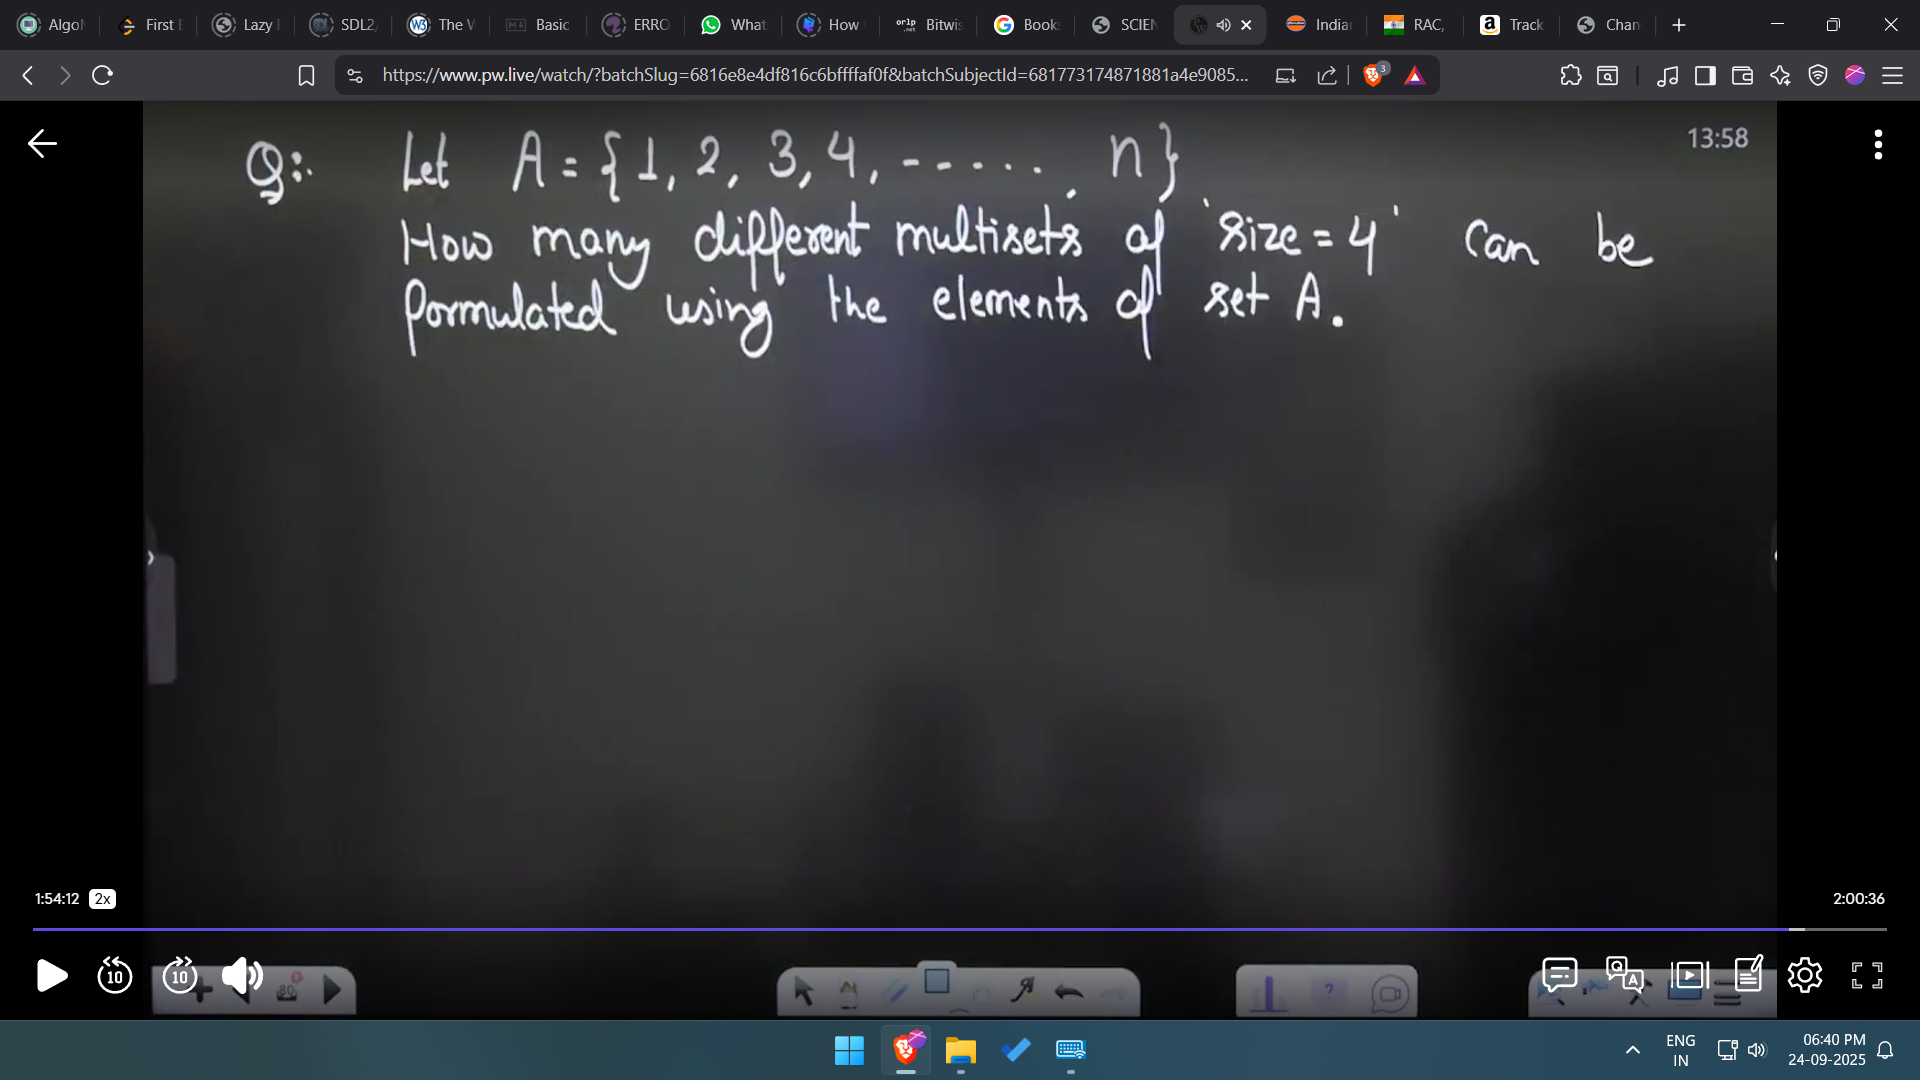 Algo First E Lazy SDL2, The W Basic ERRO What How orlp .net Bitwis Book SCIEN India RAC, Track Chan
https://www.pw.live/watch/?batchSlug=6816e8e4df816c6bffffaf0f&batchSubjectId=681773174871881a4e9085... 3
13:58
Q:. Let A = {1, 2, 3, 4, ------. n}
How many different multisets of 'size = 4' can be
formulated using the elements of set A.
1:54:12 2x 2:00:36
10 10 80
ENG 06:40 PM
IN 24-09-2025